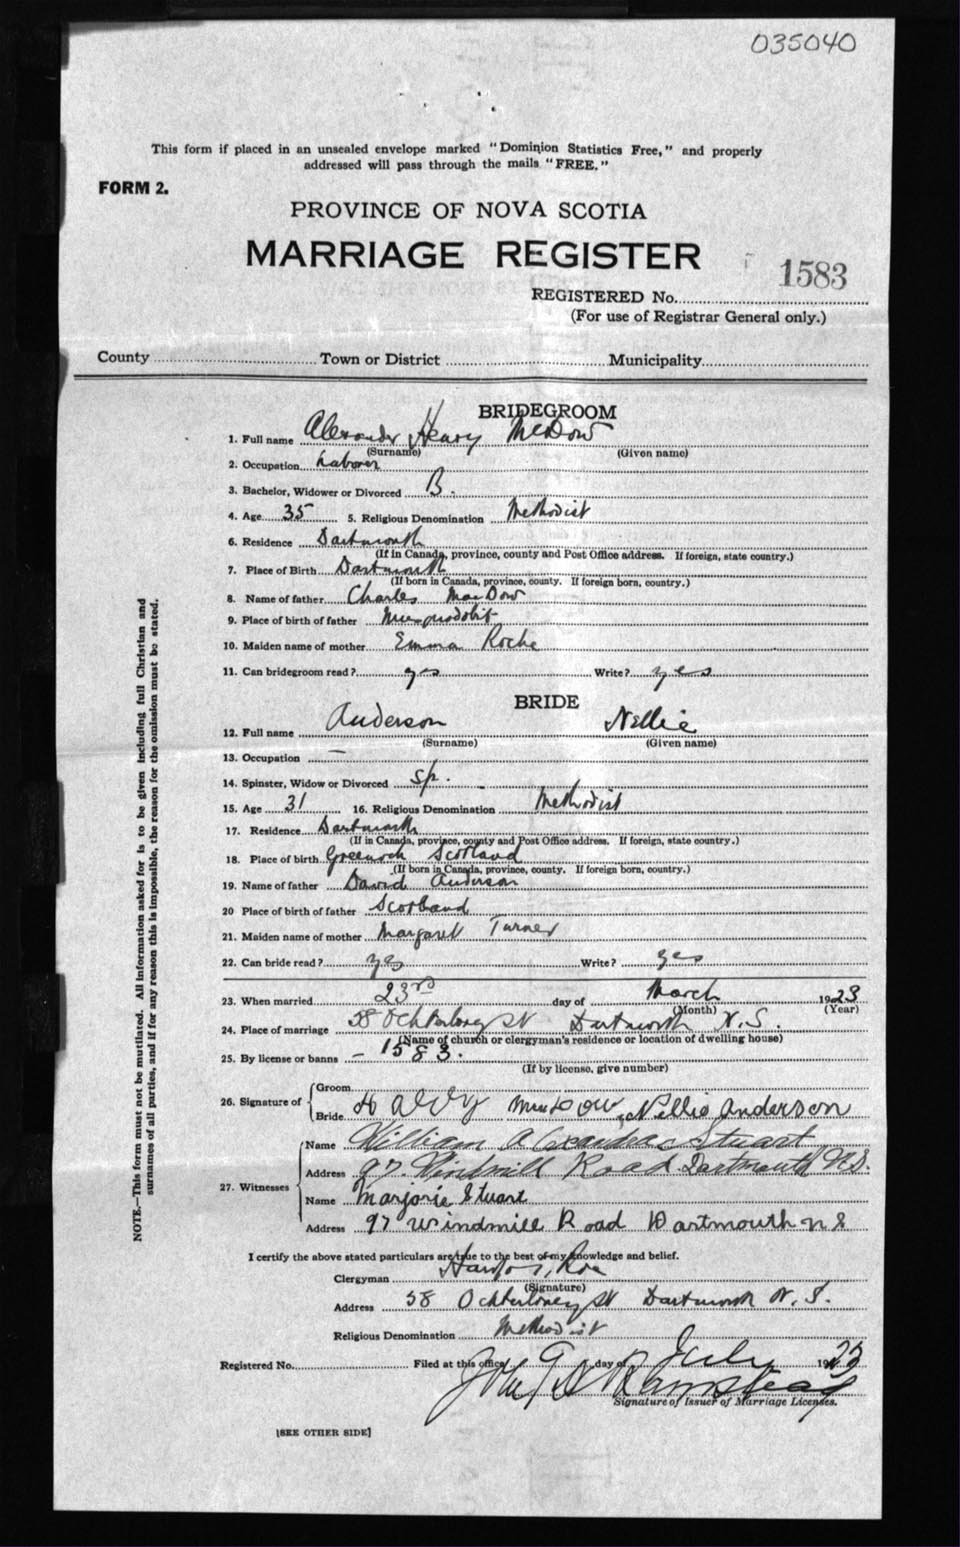 035040
This form if placed in an unsealed envelope marked "Dominion Statistics Free," and properly
addressed will pass through the mails "FREE."
FORM 2.
PROVINCE OF NOVA SCOTIA
MARRIAGE REGISTER
1583
REGISTERED No.
(For use of Registrar General only.)
County Town or District Municipality
BRIDEGROOM
1. Full name Alexander Henry
(Surname) (Given name)
2. Occupation Laborer
3. Bachelor, Widower or Divorced B.
4. Age 35 5. Religious Denomination Methodist
6. Residence Dartmouth
(If in Canada, province, county and Post Office address. If foreign, state country.)
7. Place of Birth Dartmouth
(If born in Canada, province, county. If foreign born, country.)
8. Name of father Charles MacDow
9. Place of birth of father
10. Maiden name of mother Emma Roche
11. Can bridegroom read? yes Write? yes
BRIDE
12. Full name Anderson Nellie
(Surname) (Given name)
13. Occupation —
14. Spinster, Widow or Divorced Sp.
15. Age 31 16. Religious Denomination Methodist
17. Residence Dartmouth
(If in Canada, province, county and Post Office address. If foreign, state country.)
18. Place of birth Greenock Scotland
(If born in Canada, province, county. If foreign born, country.)
19. Name of father David Anderson
20 Place of birth of father Scotland
21. Maiden name of mother Margaret Turner
22. Can bride read? yes Write? yes
23. When married 23rd day of March 1923
(Month) (Year)
24. Place of marriage 58 Ochterloney St Dartmouth N.S.
(Name of church or clergyman's residence or location of dwelling house)
25. By license or banns – 1583.
(If by license, give number)
26. Signature of Groom
Bride Nellie Anderson
27. Witnesses
Name William Stuart
Address 97 Windmill Road Dartmouth N.S.
Name Marjorie Stuart
Address 97 Windmill Road Dartmouth N S
I certify the above stated particulars are true to the best of my knowledge and belief.
Clergyman
(Signature)
Address 58 Ochterloney St Dartmouth N.S.
Religious Denomination Methodist
Registered No. Filed at this office 9 day of July 1923
Signature of Issuer of Marriage Licenses.
[SEE OTHER SIDE]
NOTE.—This form must not be mutilated. All information asked for is to be given including full Christian and
surnames of all parties, and if for any reason this is impossible, the reason for the omission must be stated.